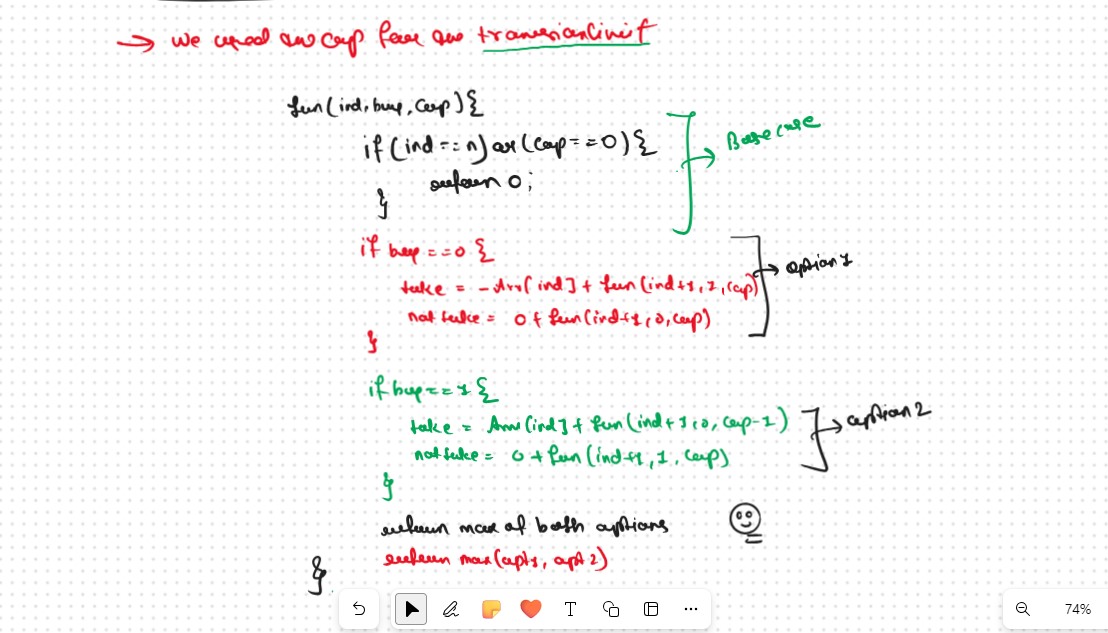 → we used an cap for an transaction limit
fun(ind, buy, cap){
if(ind == n) or (cap == 0){
return 0;
}
→ Base case
if buy == 0 {
take = -Arr[ind] + fun(ind+1, 1, cap)
not take = 0 + fun(ind+1, 0, cap)
}
→ option 1
if buy == 1 {
take = Arr[ind] + fun(ind+1, 0, cap-1)
not take = 0 + fun(ind+1, 1, cap)
}
→ option 2
return max of both options
return max(opt1, opt 2)
}
T
74%